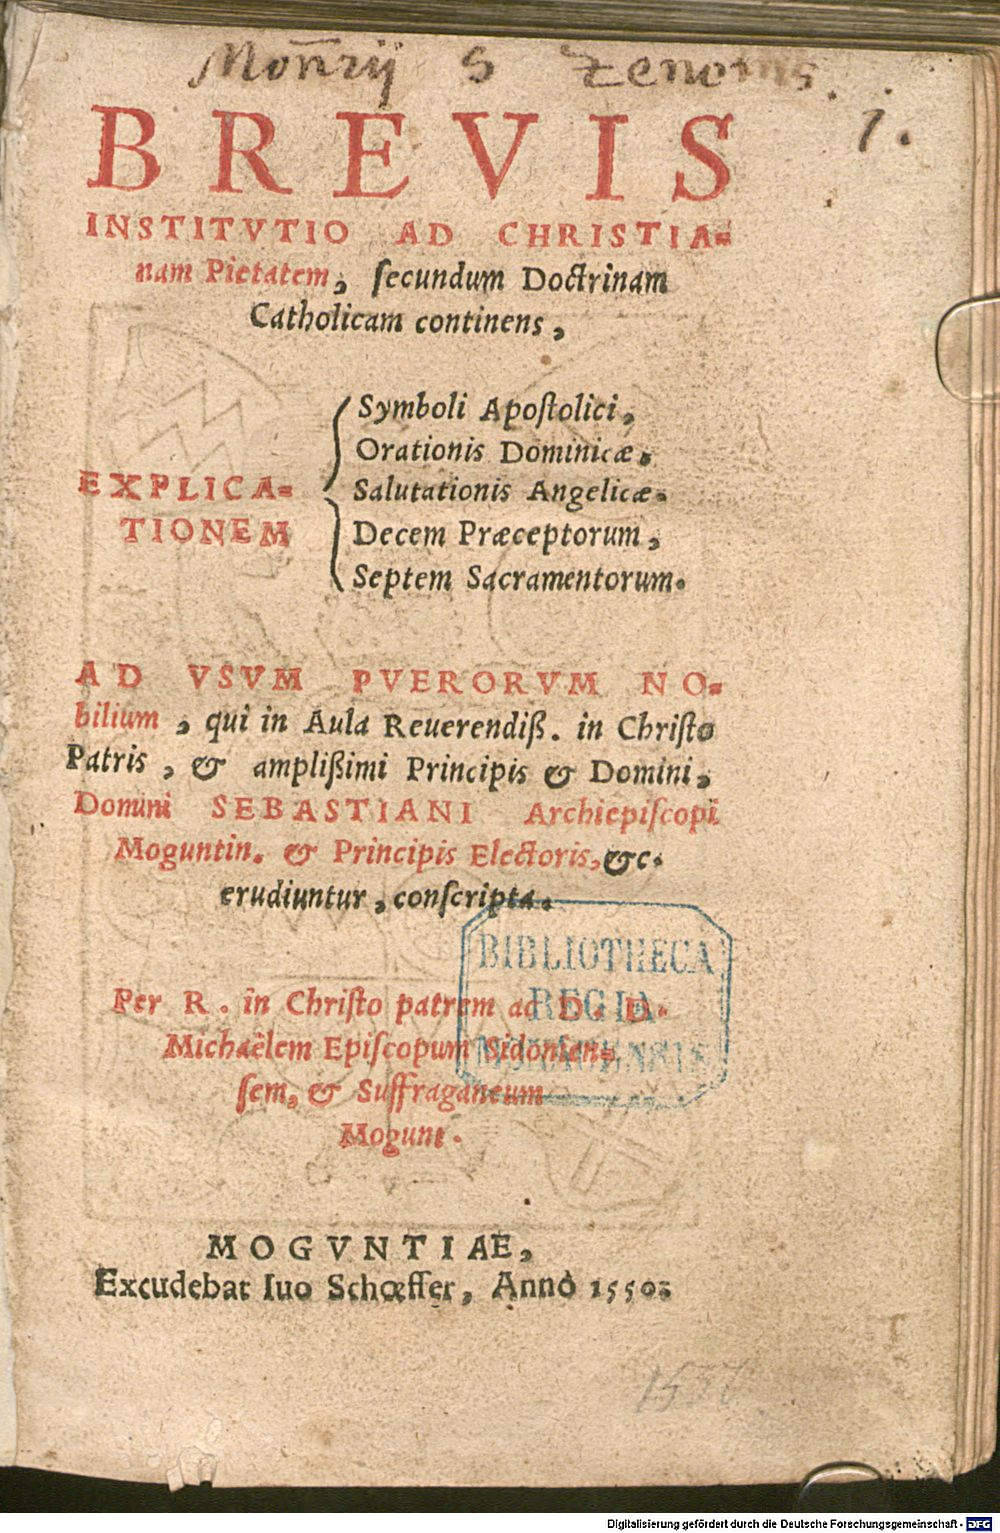 S Zenonis.
1.
BREVIS
INSTITVTIO AD CHRISTIA=
nam Pietatem, ſecundum Doctrinam
Catholicam continens,
EXPLICA=
TIONEM
Symboli Apoſtolici,
Orationis Dominicæ.
Salutationis Angelicæ.
Decem Præceptorum,
Septem Sacramentorum.
AD VSVM PVERORVM NO=
bilium, qui in Aula Reuerendiß. in Chriſto
Patris, & amplißimi Principis & Domini,
Domini SEBASTIANI Archiepiſcopi
Moguntin. & Principis Electoris, &c.
erudiuntur, conſcripta.
Per R. in Chriſto patrem ac D. D.
Michaëlem Epiſcopum Sidonien=
ſem, & Suffraganeum
Mogunt.
BIBLIOTHECA
REGIA
MONACENSIS
MOGVNTIAE,
Excudebat Iuo Schœffer, Anno 1550.
Digitalisierung gefördert durch die Deutsche Forschungsgemeinschaft - DFG